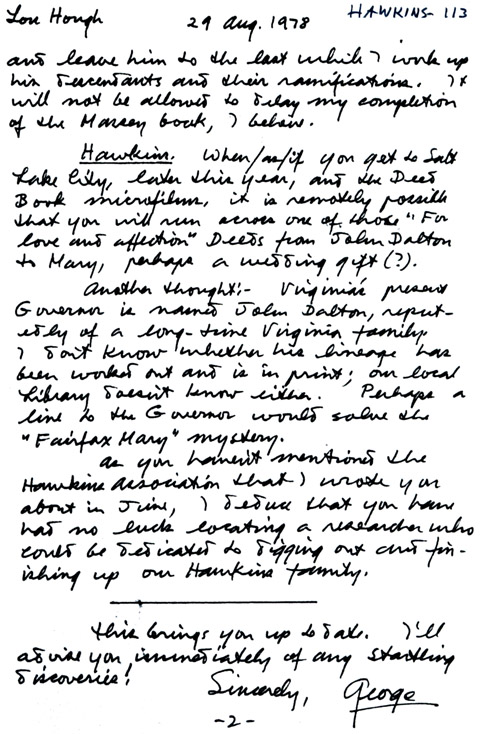 Lou Hough 29 Aug. 1978 HAWKINS- 113
and leave him to the last while I work up
his descendants and their ramifications. It
will not be allowed to delay my completion
of the Marsey book, I believe.
Hawkins. When/as/if you get to Salt
Lake City, later this year, and the Deed
Book microfilms, it is remotely possible
that you will run across one of those "For
love and affection" Deeds from John Dalton
to Mary, perhaps a wedding gift (?).
Another thought:- Virginia's present
Governor is named John Dalton, reput-
edly of a long-time Virginia family.
I don't know whether his lineage has
been worked out and is in print; our local
Library doesn't know either. Perhaps a
line to the Governor would solve the
"Fairfax Mary" mystery.
As you haven't mentioned the
Hawkins Association that I wrote you
about in June, I deduce that you have
had no luck locating a researcher who
could be dedicated to digging out and fin-
ishing up our Hawkins family.
This brings you up to date. I'll
advise you immediately of any startling
discoveries!
Sincerely, George
-2-